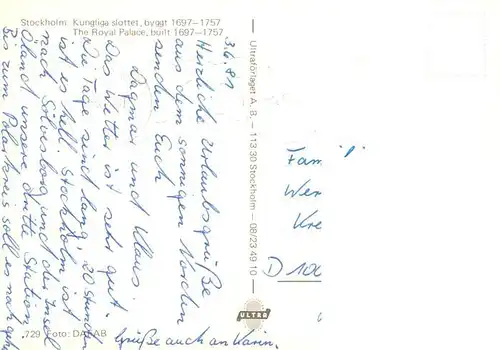 Stockholm: Kungliga slottet, byggt 1697–1757
The Royal Palace, built 1697–1757
3.6.81
Herzliche Urlaubsgrüße
aus dem sonnigen Norden
senden Euch
Dagmar und Klaus
Das Wetter ist sehr gut.
Die Tage sind lang, 20 Stunden
ist es hell. Stockholm ist
nach und der Insel
Öland unsere dritte Station.
Bis zum Polarkreis soll es noch
Grüße auch an Karin.
Ultraförlaget A.B. – 113 30 Stockholm – 08/23 49 10
Fam
Wer
Kre
D 100
ULTRA
729 Foto: DAFAB